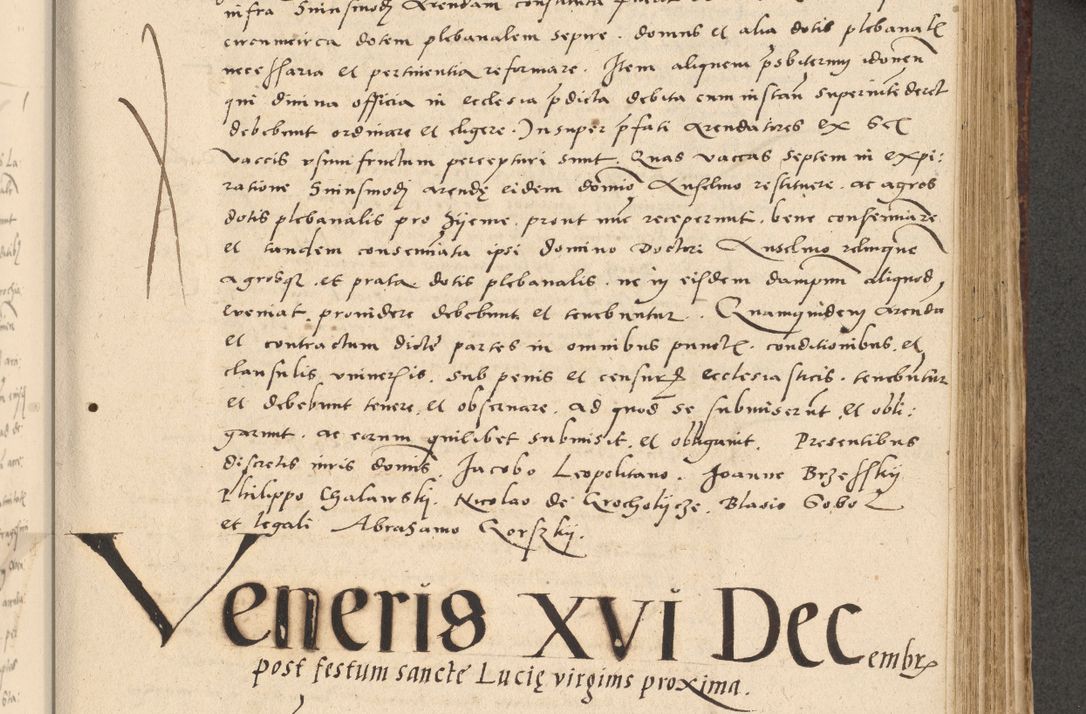 infra huiusmodi Arendam
circumcirca dotem plebanalem sepire. domus et alia dotis plebanal
necessaria et pertinentia reformare. Item aliquem presbiterum idoneum
qui divina officia in ecclesia predicta debita cum instan superintenderet
debebunt ordinare et eligere. Insuper prefati Arendatores ex
vaccis usumfructum percepturi sunt. Quas vaccas septem in expi:
ratione huiusmodi arendę eidem domino Anselmo restituere. ac agros
dotis plebanalis pro hijeme, prout nunc receperunt. bene conseminare
et tandem conseminata ipsi domino Doctori Anselmo relinquere
agrosque et prata dotis plebanalis. ne in eisdem dampnum aliquod
eveniat, providere debebunt et tenebuntur. Quamquidem arendam
et contractum dicte partes in omnibus punctis. conditionibus, et
clausulis universis, sub penis et censuris ecclesiasticis. tenebuntur
et debebunt tenere, et observare. ad quod se submiserunt et obli:
garunt. ac eorum quilibet submisit, et obligavit. Presentibus
discretis viris dominis, Jacobo Leopolitano. Joanne Brzesskij
Philippo Chalawski. Nicolao de Grocholijcze, Blasio Sobol
et legali Abrahamo Gorszkij.
Veneris XVI Decembris
post festum sancte Lucię virginis proxima.